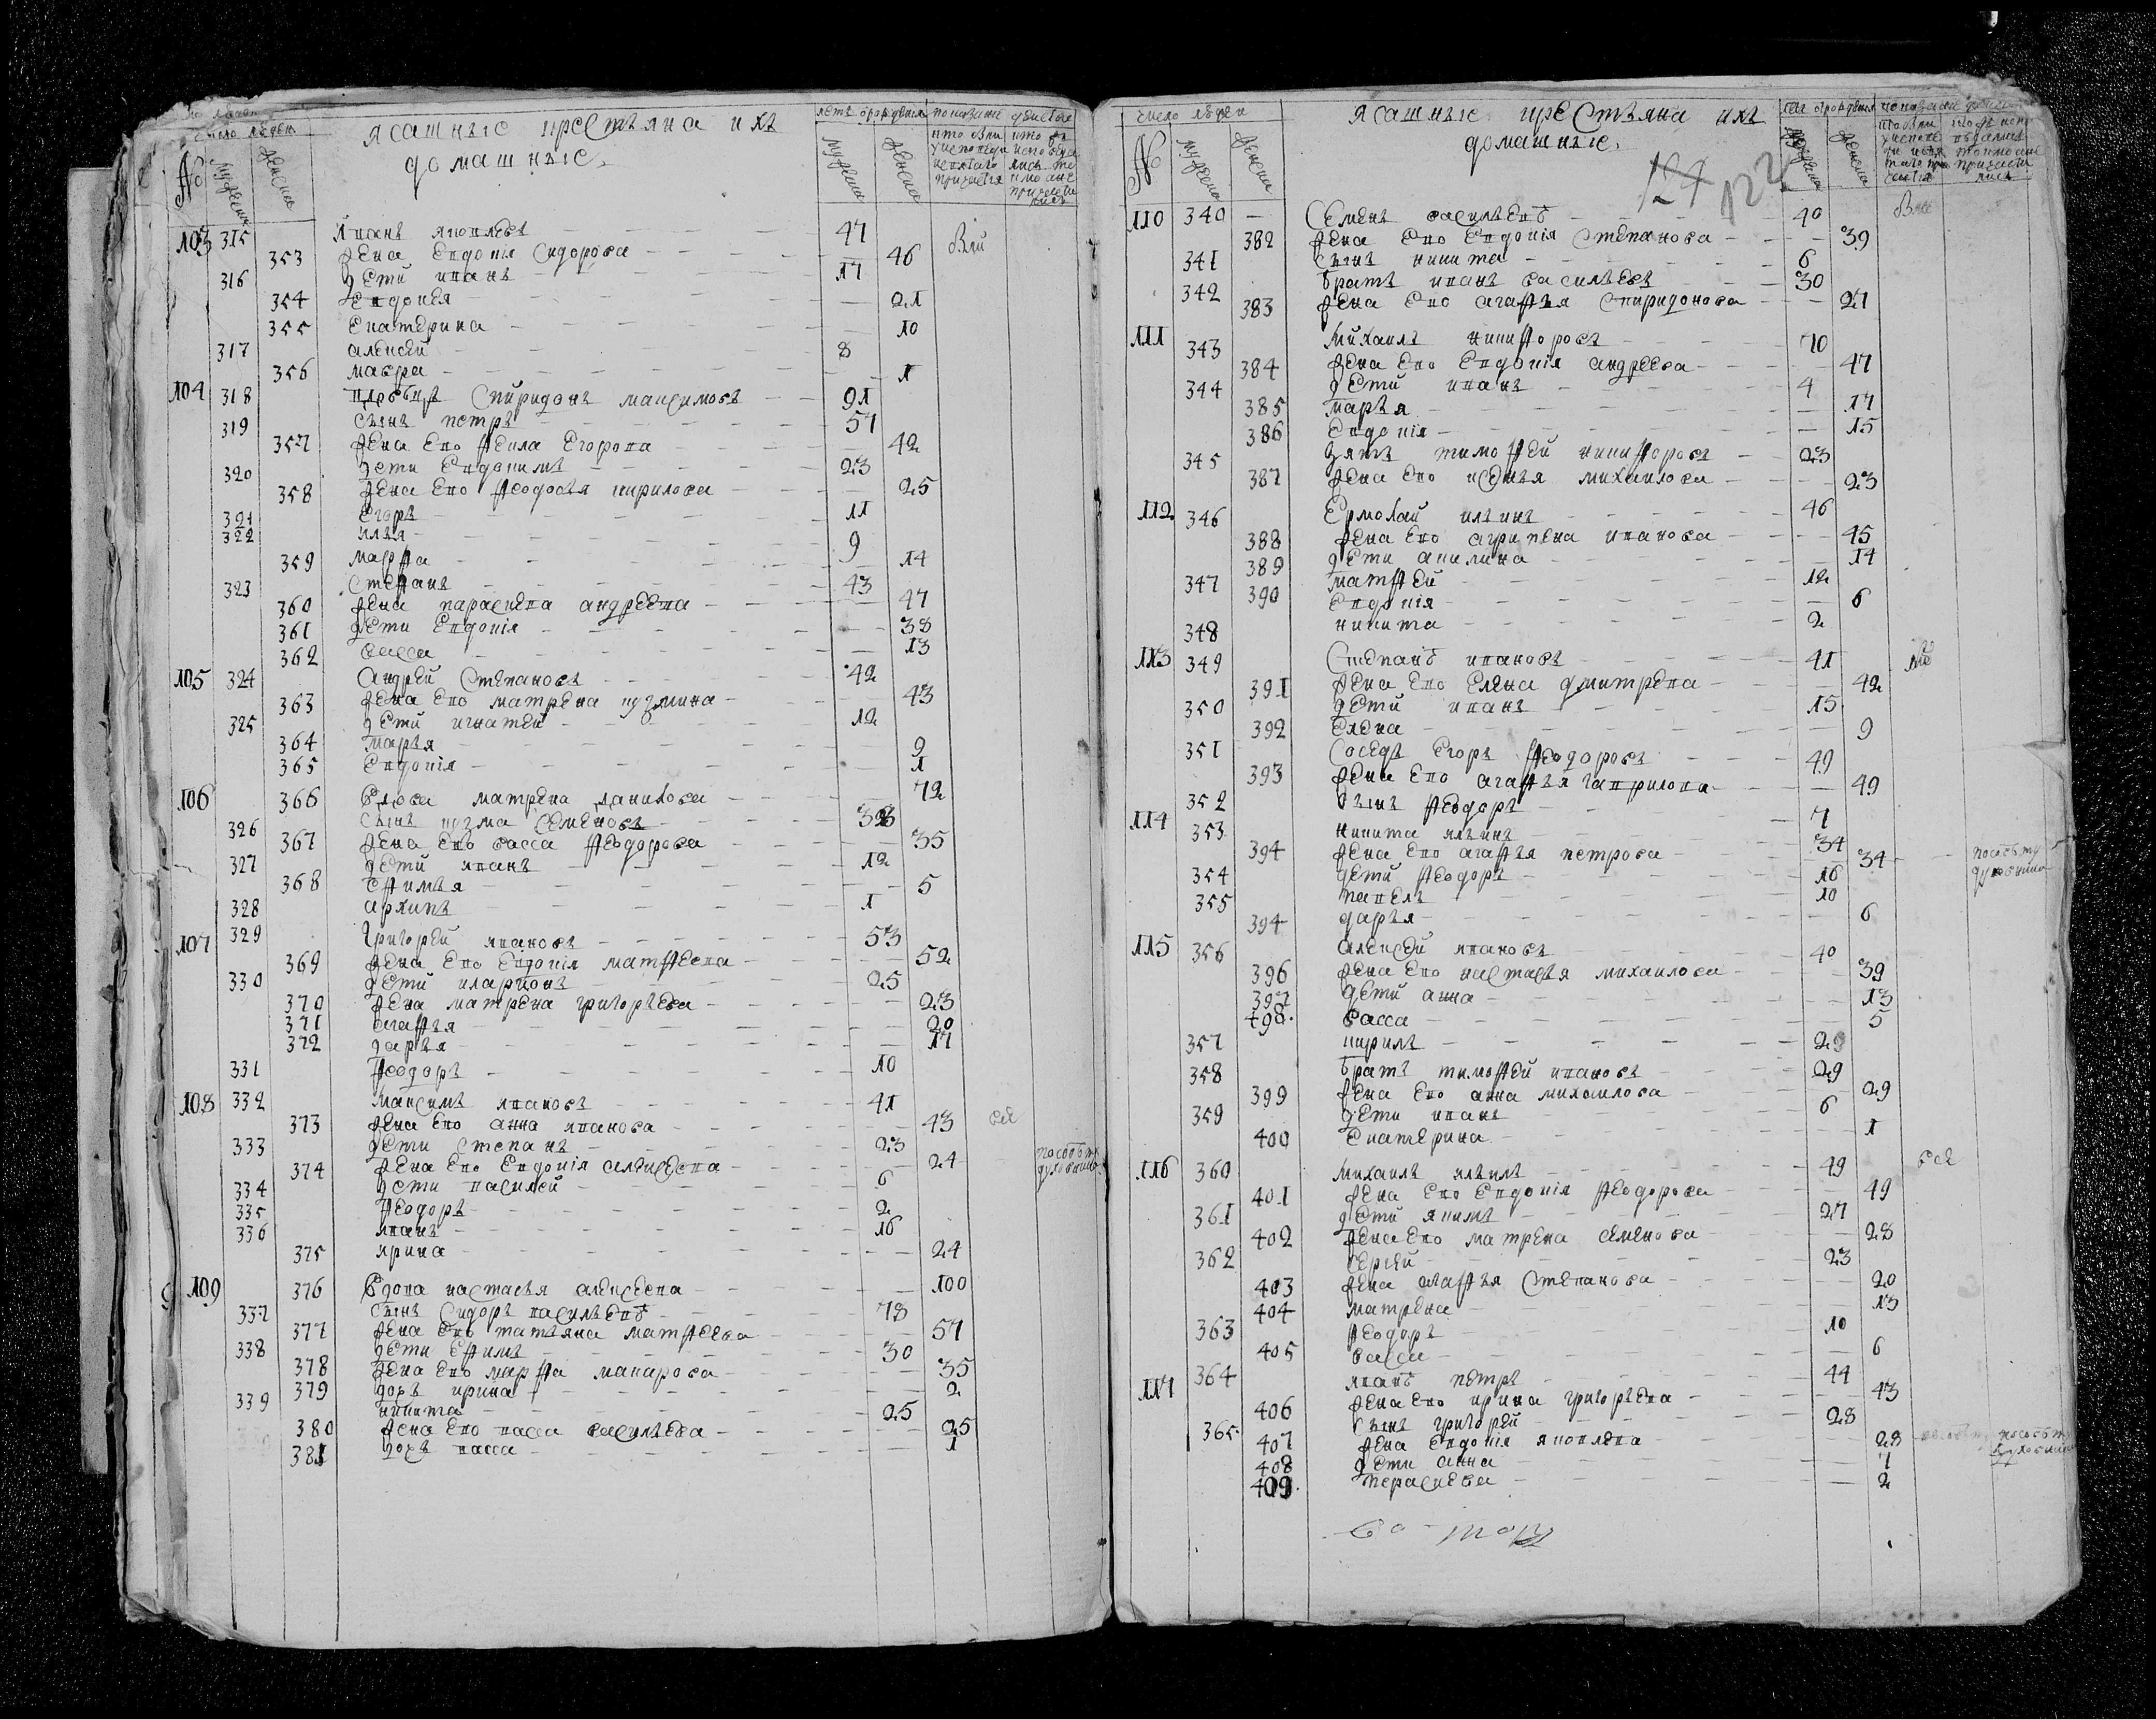 число людей
№ мужеска женска
ясашные крестьяна ихъ
домашные.
летъ отрождения
мужеска женска
103 315 Иванъ яковлевъ 47 Вси
353 жена Евдокія Сидорова 46
316 дети иванъ 17
354 Евдокѣя 21
355 Екатерина 10
317 алексей 8
356 мавра 1
104 318 вдовецъ Спиридонъ максимовъ 91
319 сынъ петръ 57
357 жена Ево Ѳекла Егорова 42
320 дети Евдокимъ 23
358 жена Ево Ѳеодосья кирилова 25
321 Егоръ 11
322 илья 9
359 марѳа 14
323 Стеѳанъ 43
360 жена параскева андреева 47
361 дети Евдокія 38
362 васса 13
105 324 Андрей Степановъ 42
363 жена Ево матрена кузмина 43
325 дети игнатей 12
364 марья 9
365 Евдокія 1
106 366 вдова матрена данилова 72
326 сынъ кузма Семеновъ 38
367 жена Ево васса Ѳеодорова 35
327 дети иванъ 12
368 еѳимья 5
328 архипъ 1
107 329 Григорей ивановъ 53
369 жена Ево Евдокія матѳеева 52
330 дети иларионъ 25
370 жена матрена григорьева 23
371 агаѳья 20
372 дарья 17
331 Ѳеодоръ 10
108 332 Максимъ ивановъ 41
373 жена Ево анна иванова 43 всѣ
333 дети Степанъ 23
374 жена Ево Евдокія алексеева 24
334 дети василей 6
335 Ѳеодоръ 2
336 иванъ 16
375 ирина 24
109 376 Вдова настасья алексеева 100
337 сынъ Сидоръ васильевъ 78
377 жена Ево татьяна матѳеева 57
338 дети Еѳимъ 30
378 жена Ево марѳа макарова 35
379 дочь ирина 2
339 никита 25
380 жена Ево васса васильева 25
381 дочь васса 1
число людей
№ мужеска женска
ясашные крестьяна ихъ
домашные.
124 122
110 340 — Семенъ васильевъ 40 Вси
382 жена Ево Евдокія Степанова 39
341 сынъ никита 6
342 братъ иванъ васильевъ 30
383 жена Ево агаѳья Спиридонова 27
111 343 Михаилъ никиѳоровъ 70
384 жена Ево Евдокія андреева 47
344 дети иванъ 4
385 марья 17
386 Евдокія 15
345 зять тимоѳей никиѳоровъ 23
387 жена Ево ксенья михаилова 23
112 346 Ермолай ильинъ 46
388 жена Ево агрипена иванова 45
389 дети акилина 14
347 матѳей 12
390 Евдокія 6
348 никита 2
113 349 Степанъ ивановъ 41
391 жена Ево Елена дмитрева 42
350 дети иванъ 15
392 Елена 9
351 Соседъ Егоръ Ѳеодоровъ 49
393 жена Ево агаѳья гаврилова 49
352 сынъ Ѳеодоръ 7
114 353 никита ильинъ 34
394 жена Ево агаѳья петрова 34
354 дети Ѳеодоръ 16
355 павелъ 10
394 дарья 6
115 356 алексей ивановъ 40
396 жена Ево настасья михаилова 39
397 дети анна 13
498. васса 5
357 кирилъ 29
358 братъ тимоѳей ивановъ 29
399 жена Ево анна михаилова 29
359 дети иванъ 6
400 Екатерина 1
116 360 михаилъ ильинъ 49 всѣ
401 жена Ево Евдокія Ѳеодорова 49
361 дети якимъ 27
402 жена Ево матрена семенова 28
362 сергей 23
403 жена агаѳья Степанова 20
404 матрена 13
363 Ѳеодоръ 10
405 васса 6
117 364 иванъ петръ 44
406 жена Ево ирина григорьева 43
365 сынъ григорей 28
407 жена Евдокія яковлева 28
408 дети анна 7
409. параскева 2